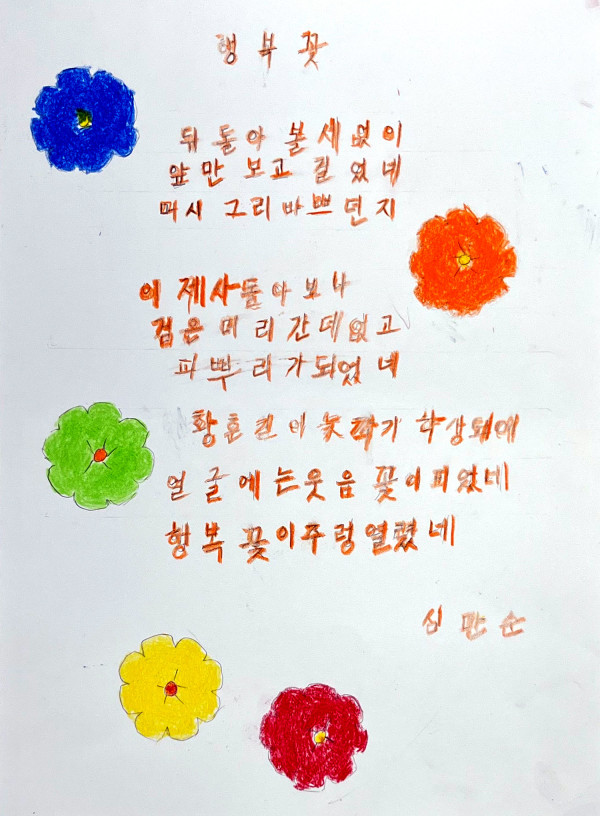 행복꽃
뒤돌아볼세없이
앞만보고 걸었네
머시 그리바쁘던지
이제사돌아보니
검은머리간데없고
파뿌리가되었네
황혼길이 늦깍기 학생돼에
얼굴에는웃음꽃이피었네
행복꽃이주렁열렸네
심만순